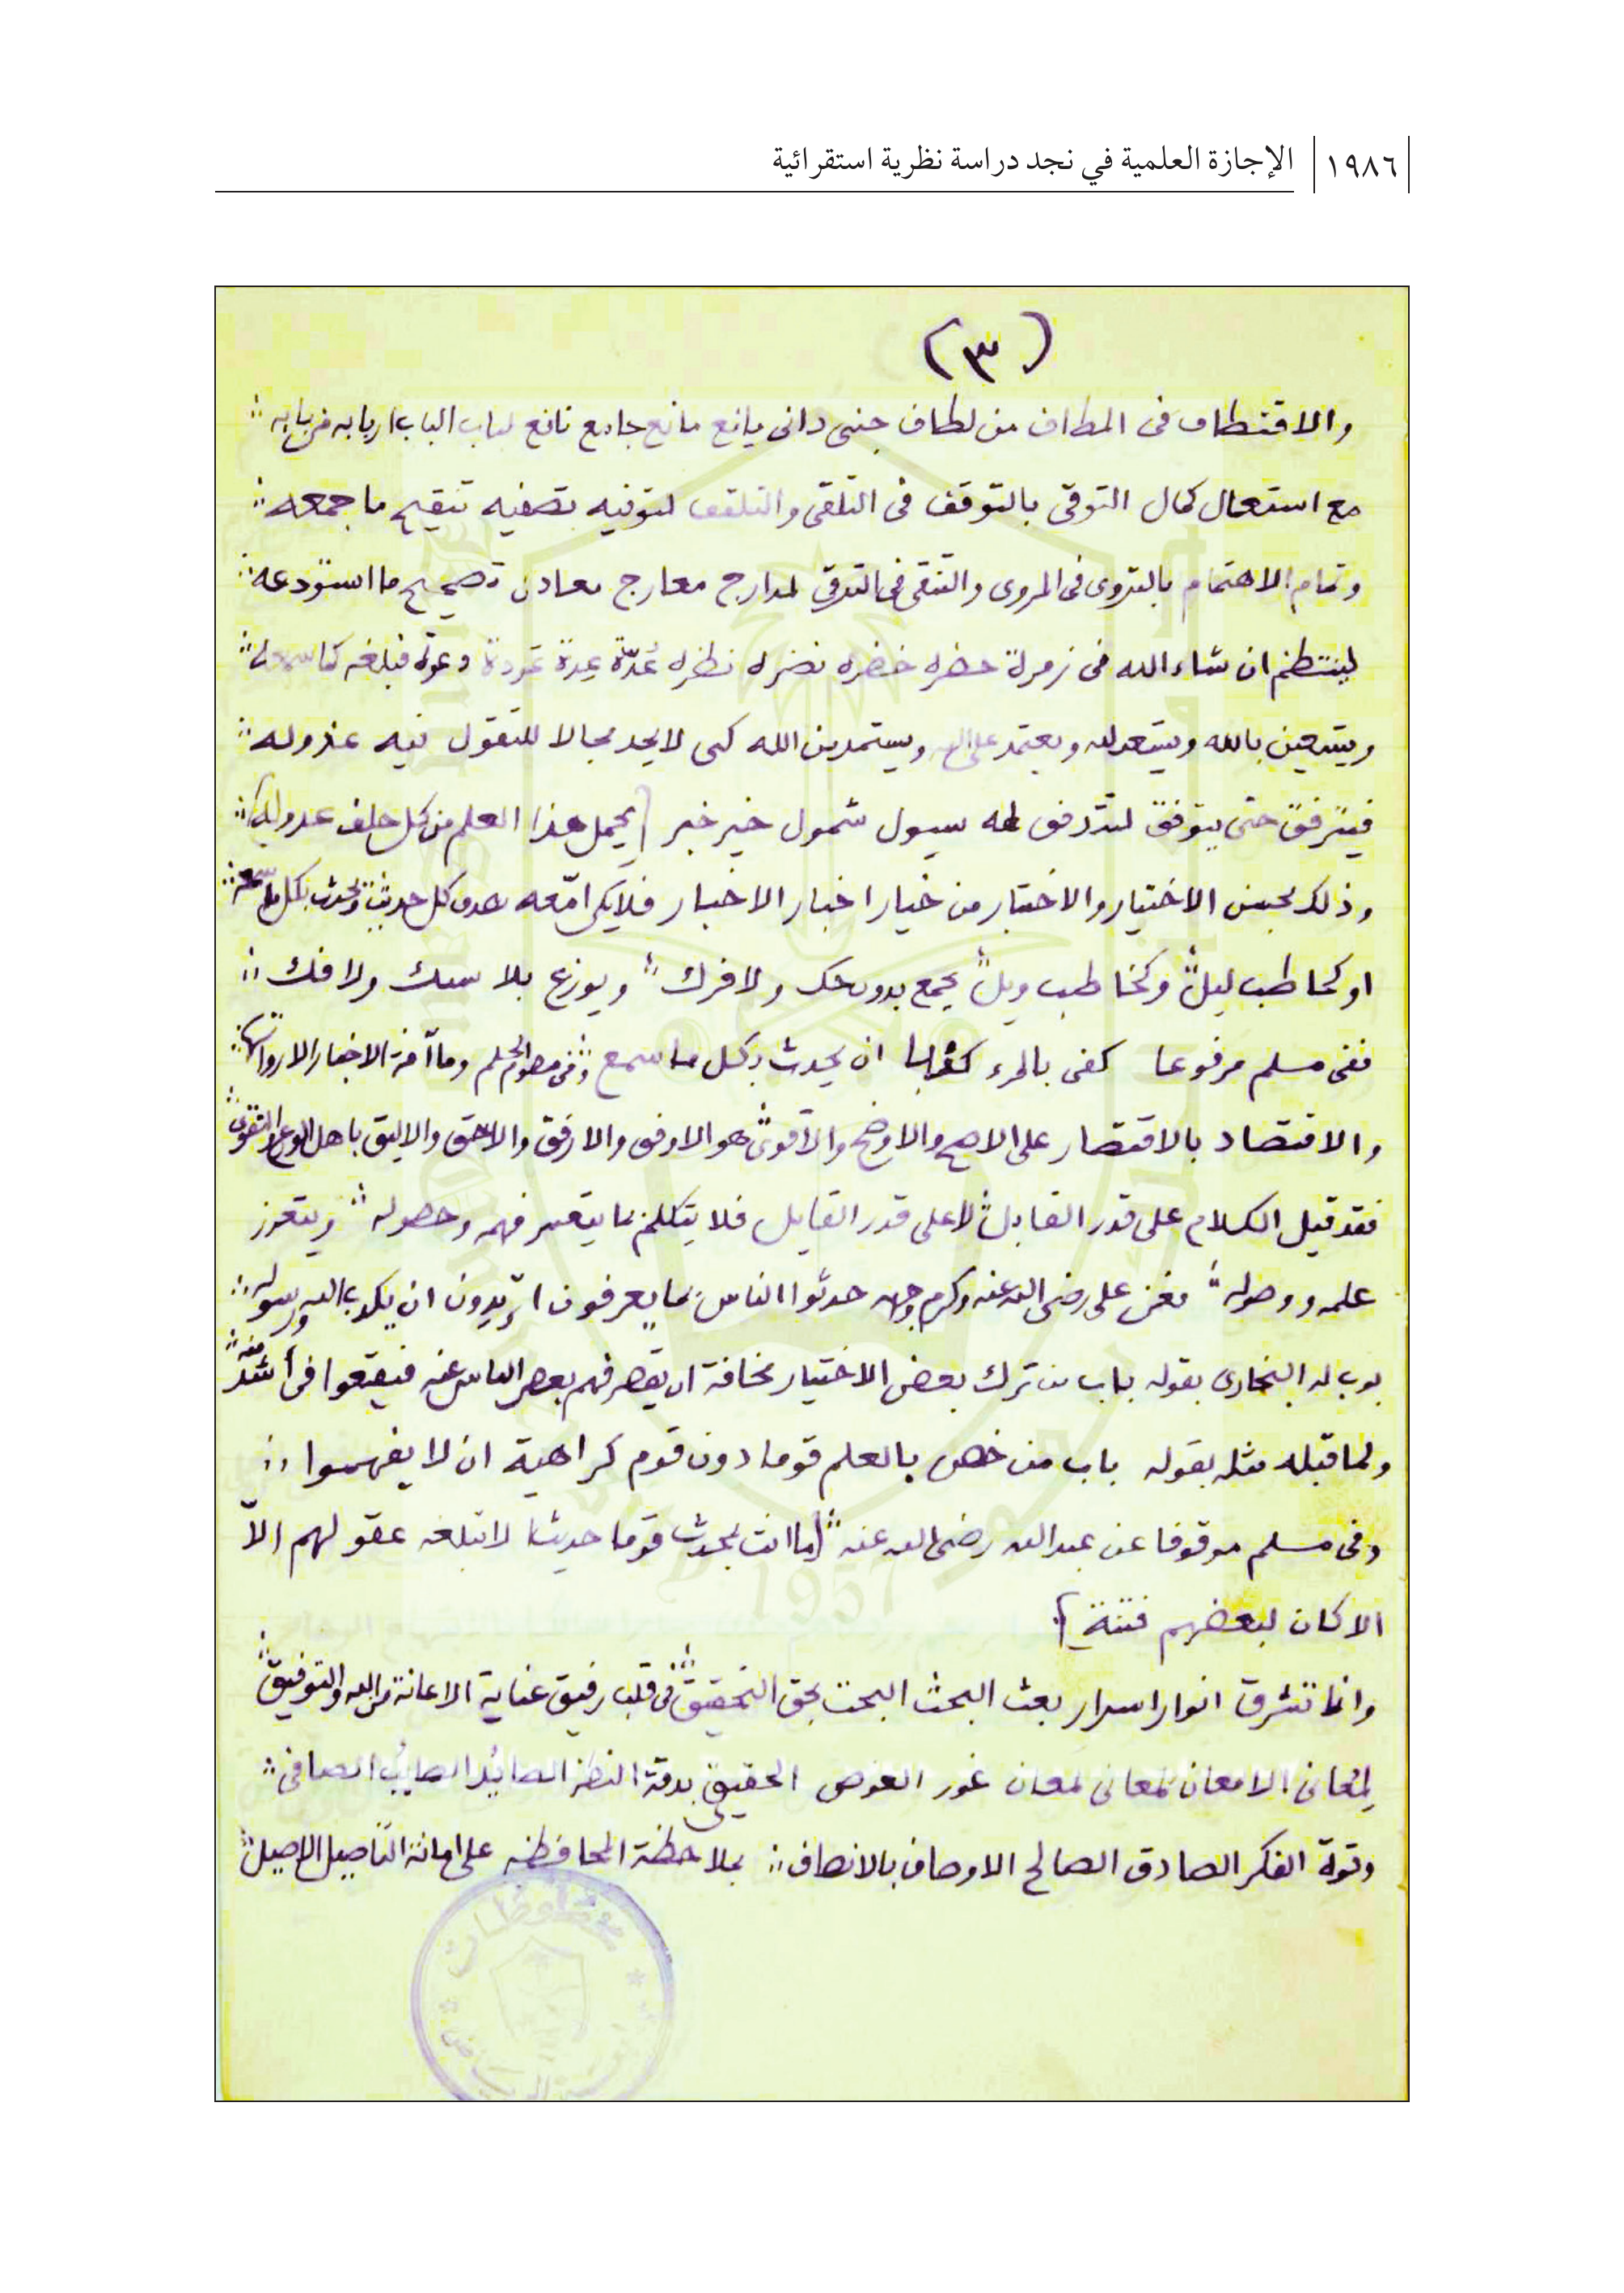 ١٩٨٦ الإجازة العلمية في نجد دراسة نظرية استقرائية
(٣)
والاقتطاف فى المطاف من لطاف جنى دانى يانع مانع جامع نافع لباب الباب اربابه من بابه
مع استعمال كمال التوقى بالتوقف فى التلقى والتلقف لتوفيه تصفيه تنقيح ما جمعه
وتمام الاهتمام بالتروى فى المروى والتنقى فى الترقى لمدارج معارج معادن تصحيح ما استودعه
لينتظم ان شاء الله فى زمرة حضره خضره نضره نظره عُدّة عِدة دعوة فبلغه كما سمعه
ويستعين بالله ويعتمد على الله ويستمد من الله كى لا يجد مجالا للتقول فيه عذوله
فيترفق حتى يتوفق لتدفق له سيول شمول خير خبر يحمل هذا العلم من كل خلف عدوله
وذلك بحسن الاختيار والاختبار من خيار اخبار الاخبار فلا يكن امّعه كل حديث ويحدث بكل ما سمعه
او كحاطب ليل وكخاطب ويل يجمع بدون حك ولا فرك ويوزع بلا سبك ولا فك
ففى مسلم مرفوعا كفى بالمرء كذبا ان يحدث بكل ما سمع وما آفة الاخبار الا رواتها
والاقتصاد بالاقتصار على الاصح والاوضح والاقوى هو الاوفق والارفق والاحق والاليق باهل الورع والتقوى
فقد قيل الكلام على قدر القابل لا على قدر القايل فلا يتكلم بما يتعسر فهمه وحصوله ويتعزز
علمه ووصوله فعن على رضى الله عنه وكرم وجهه حدثوا الناس بما يعرفون اتريدون ان يكذب الله ورسوله
بوب له البخارى بقوله باب من ترك بعض الاختيار مخافة ان يقصر فهم بعض الناس عنه فيقعوا فى أشد منه
ولما قبله مثله بقوله باب من خص بالعلم قوما دون قوم كراهية ان لا يفهموا
وفى مسلم موقوفا عن عبد الله رضى الله عنه ما انت بمحدث قوما حديثا لا تبلغه عقولهم الاّ
الا كان لبعضهم فتنة
وانما تشرق انوار اسرار بعث البحث البحت بحق التحقيق فى قلب رفيق عناية الاعانة من الله والتوفيق
لمعانى الامعان لمعانى لمعان غور الغوص الحقيقى بدقة النظر الصائد الصايب الصافى
وقوة الفكر الصادق الصالح الاوصاف بالانصاف بملاحظة المحافظه على امانة التأصيل الاصيل
1957